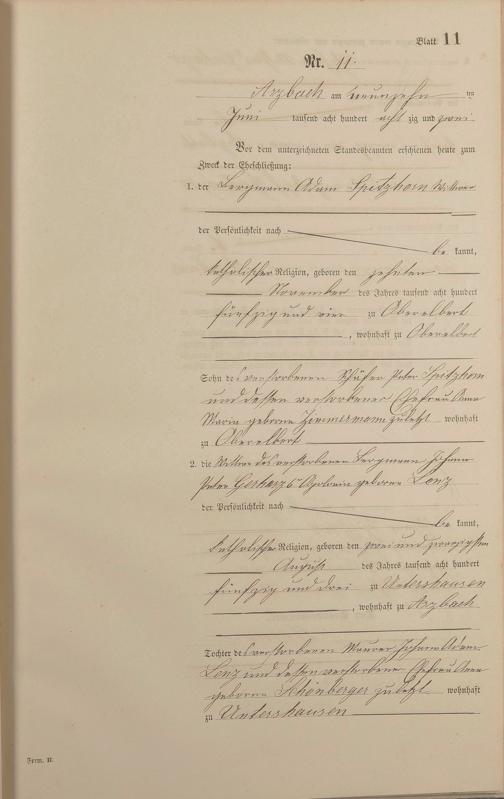 Blatt 11
Nr. 11.
Arzbach am neunzehn ten
Juni tausend acht hundert acht zig und zwei
Vor dem unterzeichneten Standesbeamten erschienen heute zum
Zweck der Eheschließung:
1. der Bergmann Adam Spitzhorn Witwer
der Persönlichkeit nach
be kannt,
katholischer Religion, geboren den zehnten
November des Jahres tausend acht hundert
fünfzig und vier zu Oberelbert
, wohnhaft zu Oberelbert
Sohn des verstorbenen Schäfer Peter Spitzhorn
und dessen verstorbener Ehefrau Anna
Maria geborne Zimmermann zuletzt wohnhaft
zu Oberelbert
2. die Wittwe des verstorbenen Bergmann Johann
Peter Gerharz Apolonia geborene Lenz
der Persönlichkeit nach
be kannt,
katholischer Religion, geboren den zwei und zwanzigsten
August des Jahres tausend acht hundert
fünfzig und drei zu Untershausen
, wohnhaft zu Arzbach
Tochter des verstorbenen Maurer Johann Adam
Lenz und dessen verstorbener Ehefrau Anna
geborne Schönberger zuletzt wohnhaft
zu Untershausen
Form. II.